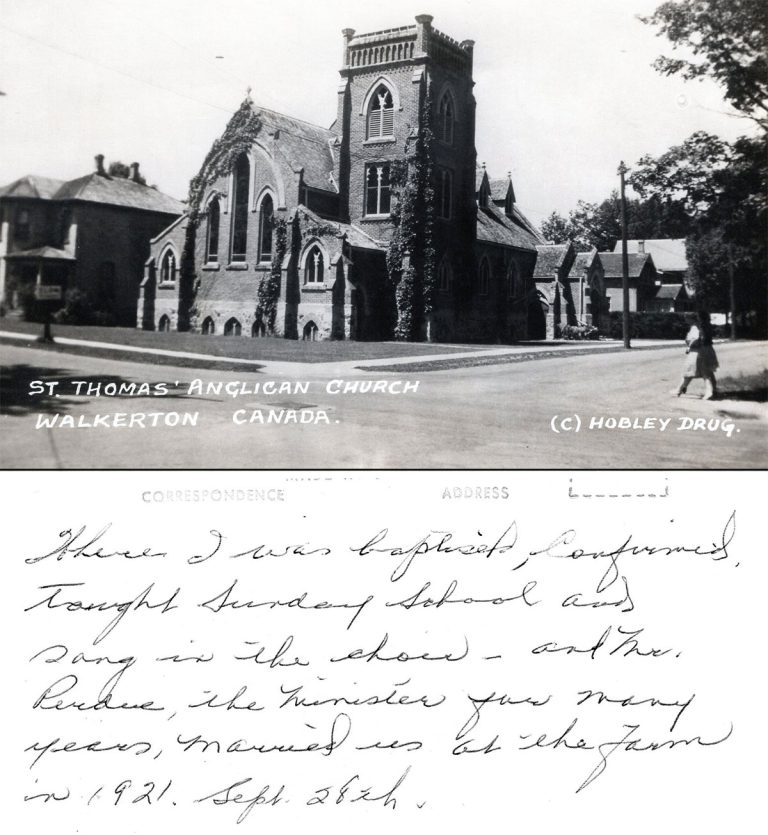 ST. THOMAS' ANGLICAN CHURCH
WALKERTON CANADA.
(C) HOBLEY DRUG.
CORRESPONDENCE ADDRESS
Where I was baptised, Confirmed,
Taught Sunday School and
sang in the choir – and Mr.
Perdue, the Minister for many
years, Married us at the Farm
in 1921. Sept. 28th.